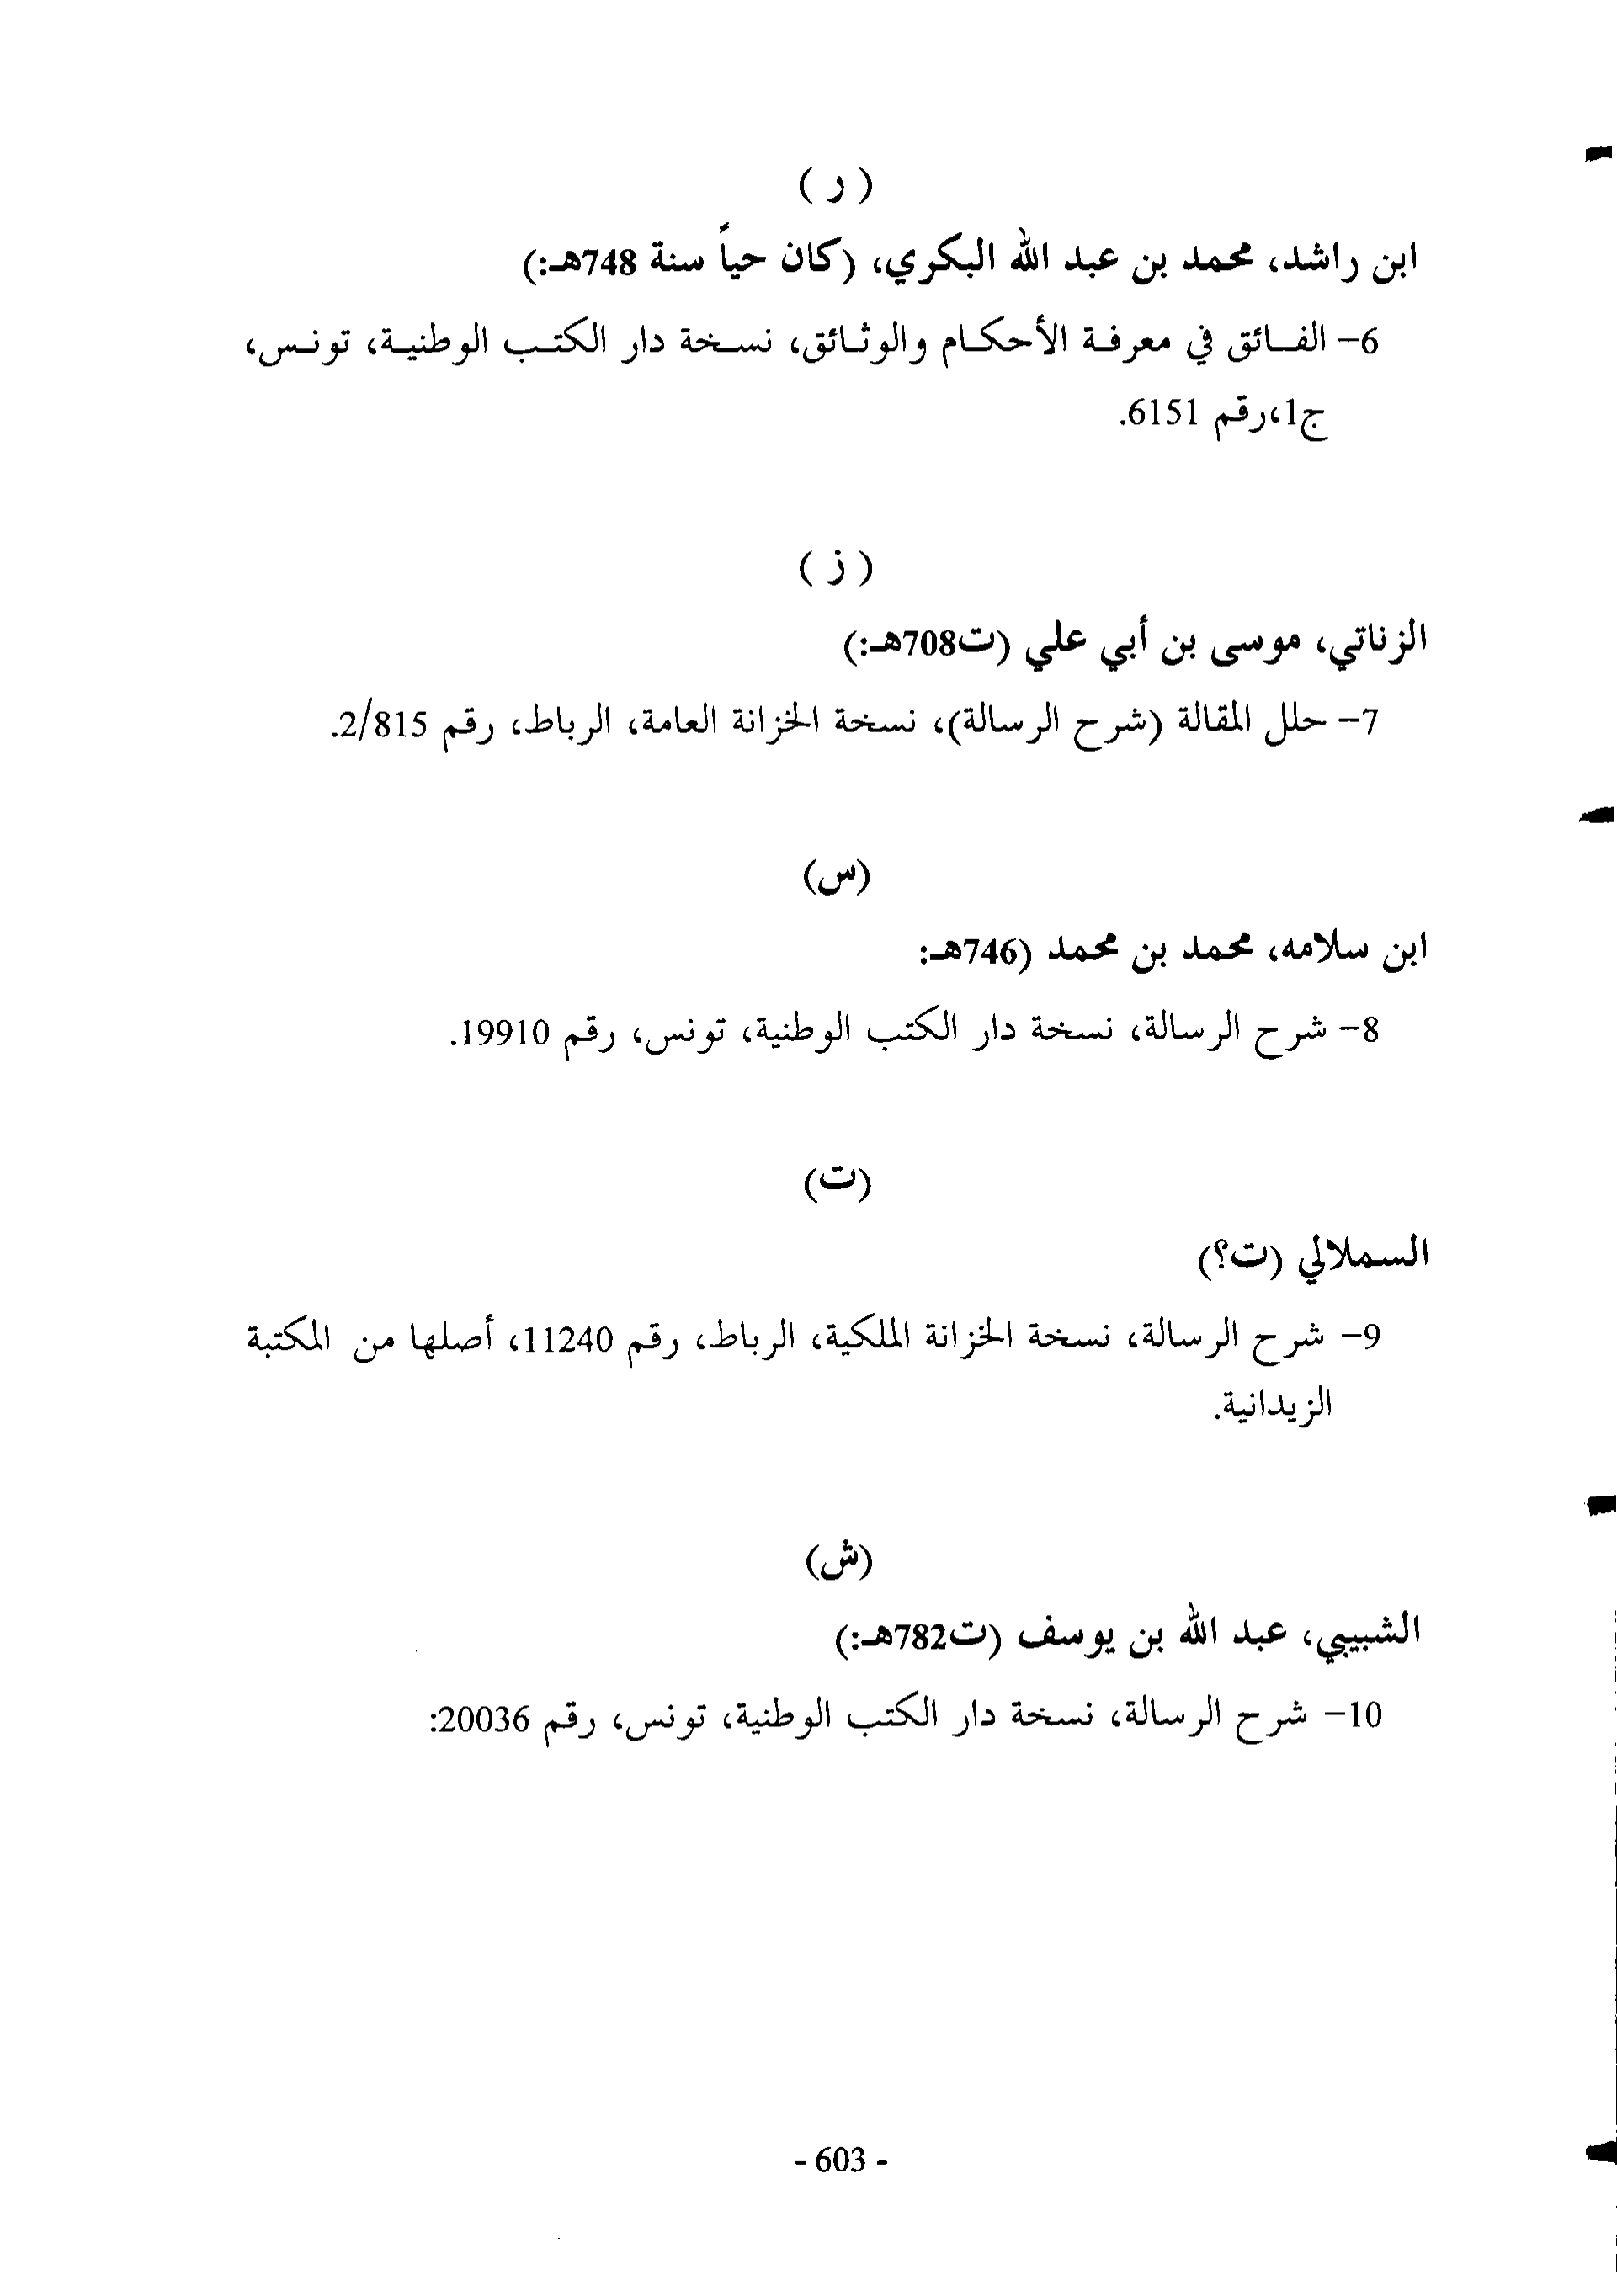 ( ر )
ابن راشد، محمد بن عبد الله البكري، (كان حياً سنة 748هـ:)
6- الفـائق في معرفـة الأحكـام والوثـائق، نسـخة دار الكتـب الوطنيـة، تونـس،
ج1،رقم 6151.
( ز )
الزناتي، موسى بن أبي علي (ت708هـ:)
7- حلل المقالة (شرح الرسالة)، نسخة الخزانة العامة، الرباط، رقم 2/815.
(س)
ابن سلامه، محمد بن محمد (746هـ:
8- شرح الرسالة، نسخة دار الكتب الوطنية، تونس، رقم 19910.
(ت)
السملالي (ت؟)
9- شرح الرسالة، نسخة الخزانة الملكية، الرباط، رقم 11240، أصلها من المكتبة
الزيدانية.
(ش)
الشبيبي، عبد الله بن يوسف (ت782هـ:)
10- شرح الرسالة، نسخة دار الكتب الوطنية، تونس، رقم 20036:
- 603 -